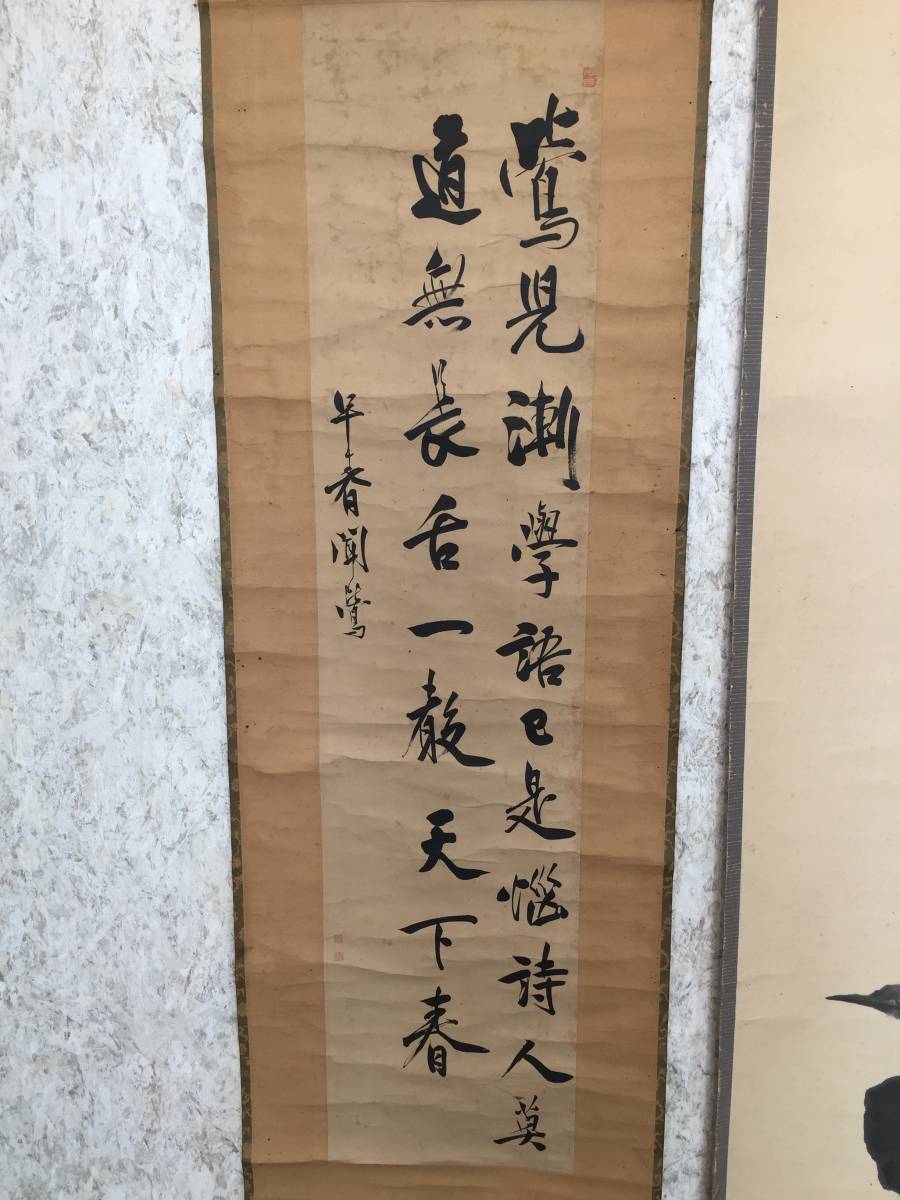 鶯児漸學語已是惱詩人莫
道無長舌一聲天下春
早春聞鶯